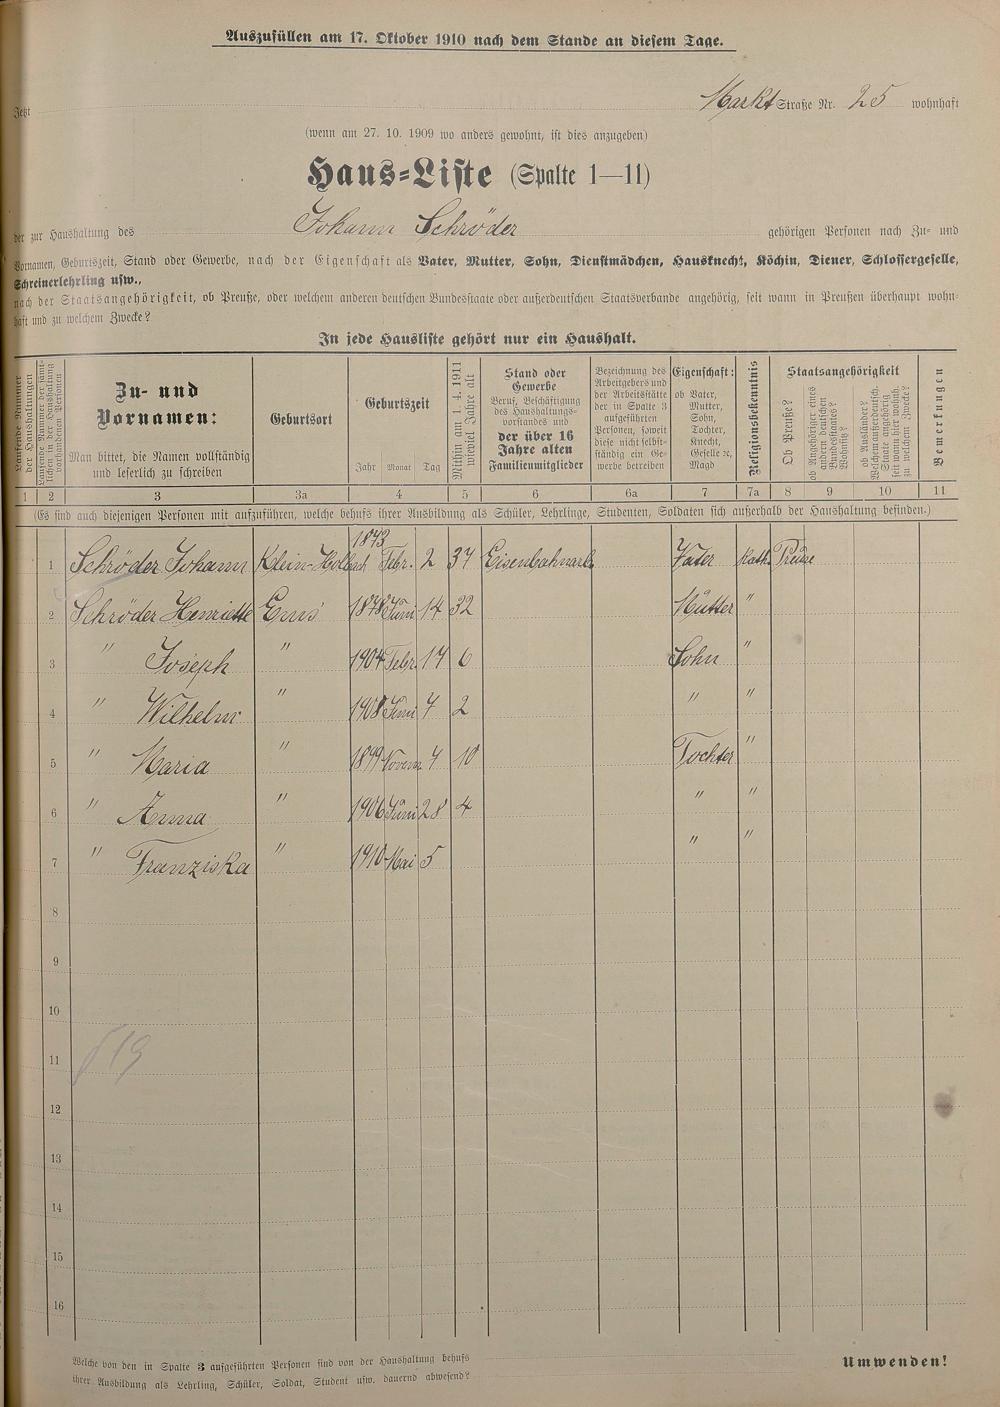 Auszufüllen am 17. Oktober 1910 nach dem Stande an diesem Tage.
Jetzt Markt Straße Nr. 25 wohnhaft
(wenn am 27. 10. 1909 wo anders gewohnt, ist dies anzugeben)
Haus=Liste (Spalte 1—11)
der zur Haushaltung des Johann Schröder gehörigen Personen nach Zu- und
Vornamen, Geburtszeit, Stand oder Gewerbe, nach der Eigenschaft als Vater, Mutter, Sohn, Dienstmädchen, Hausknecht, Köchin, Diener, Schlossergeselle,
Schreinerlehrling usw.,
nach der Staatsangehörigkeit, ob Preuße, oder welchem anderen deutschen Bundesstaate oder außerdeutschen Staatsverbande angehörig, seit wann in Preußen überhaupt wohn-
haft und zu welchem Zwecke?
In jede Hausliste gehört nur ein Haushalt.
Laufende Nummer der Haushaltungen
Laufende Nummer der sämtlichen in der Haushaltung vorhandenen Personen
Zu- und
Vornamen:
Man bittet, die Namen vollständig
und leserlich zu schreiben
Geburtsort
Geburtszeit
Jahr Monat Tag
Mithin am 1. 4. 1911
wieviel Jahre alt
Stand oder
Gewerbe
Beruf, Beschäftigung
des Haushaltungs-
vorstandes und
der über 16
Jahre alten
Familienmitglieder
Bezeichnung des
Arbeitgebers und
der Arbeitsstätte
der in Spalte 3
aufgeführten
Personen, soweit
diese nicht selbst-
ständig ein Ge-
werbe betreiben
Eigenschaft:
ob Vater,
Mutter,
Sohn,
Tochter,
Knecht,
Geselle ꝛc,
Magd
Religionsbekenntnis
Staatsangehörigkeit
Ob Preuße?
ob Angehöriger eines
andern deutschen
Bundesstaates?
Wohnsitz?
ob Ausländer?
Welchem außerdeutsch.
Staate angehörig
seit wann hier wohnh.
zu welchem Zwecke?
Bemerkungen
1 2 3 3a 4 5 6 6a 7 7a 8 9 10 11
(Es sind auch diejenigen Personen mit aufzuführen, welche behufs ihrer Ausbildung als Schüler, Lehrlinge, Studenten, Soldaten sich außerhalb der Haushaltung befinden.)
1 Schröder Johann Klein-Holbach 1873 Febr. 2 37 Eisenbahnarb. Vater Kath. Preuße
2 Schröder Henriette Ems 1878 Juni 14 32 Mutter "
3 " Joseph " 1904 Febr. 17 6 Sohn "
4 " Wilhelm " 1908 Juni 7 2 " "
5 " Maria " 1899 Novem. 7 10 Tochter "
6 " Anna " 1906 Juni 28 4 " "
7 " Franziska " 1910 Mai 5 " "
8
9
10
11
12
13
14
15
16
Welche von den in Spalte 3 aufgeführten Personen sind von der Haushaltung behufs
ihrer Ausbildung als Lehrling, Schüler, Soldat, Student usw. dauernd abwesend?
Umwenden!